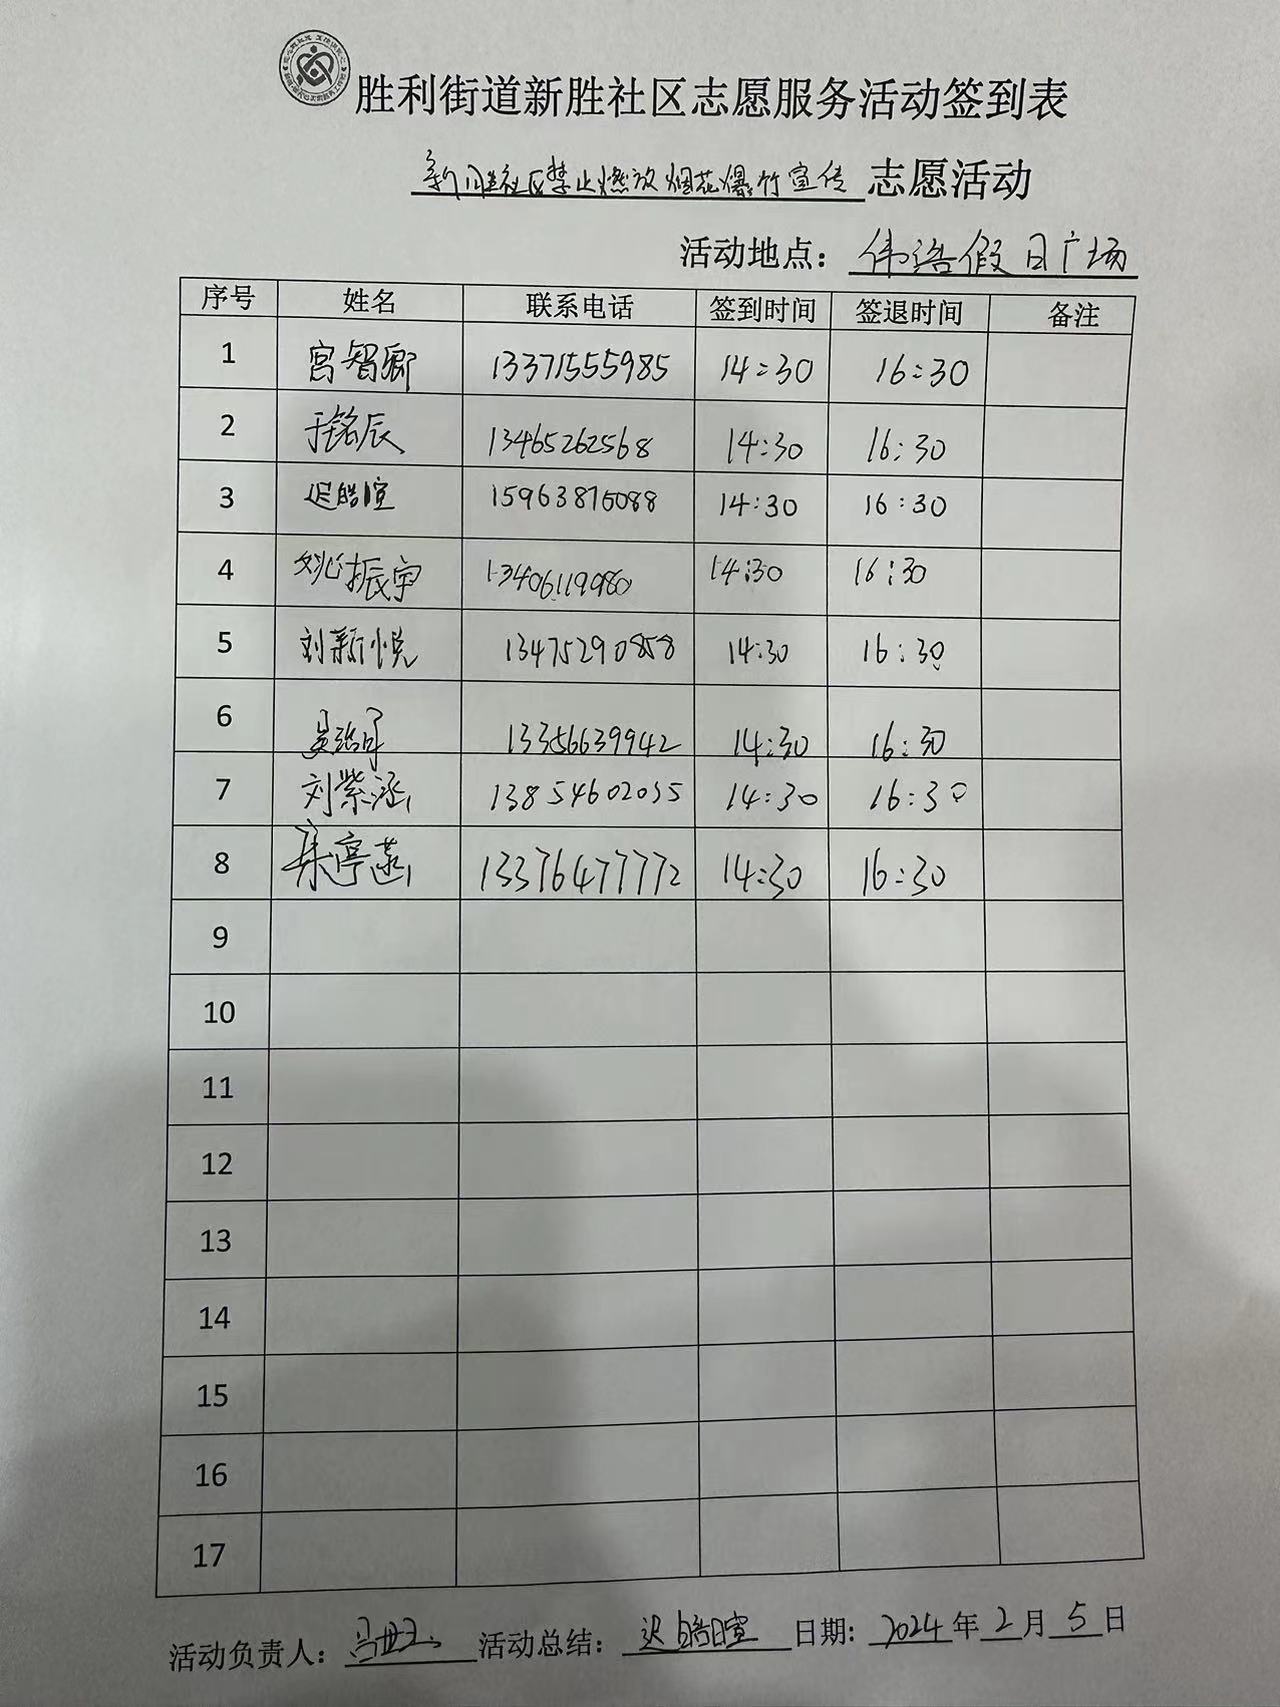 胜利街道新胜社区志愿服务活动签到表
新胜社区禁止燃放烟花爆竹宣传 志愿活动
活动地点：伟浩假日广场
序号 姓名 联系电话 签到时间 签退时间 备注
1 宫智卿 13371555985 14:30 16:30
2 于铭辰 13465262568 14:30 16:30
3 迟皓暄 15963876088 14:30 16:30
4 姚振宇 13406119980 14:30 16:30
5 刘新悦 13475290858 14:30 16:30
6 13356639942 14:30 16:30
7 刘紫涵 13854602035 14:30 16:30
8 13376477772 14:30 16:30
9
10
11
12
13
14
15
16
17
活动负责人： 活动总结：迟皓暄 日期：2024年2月5日